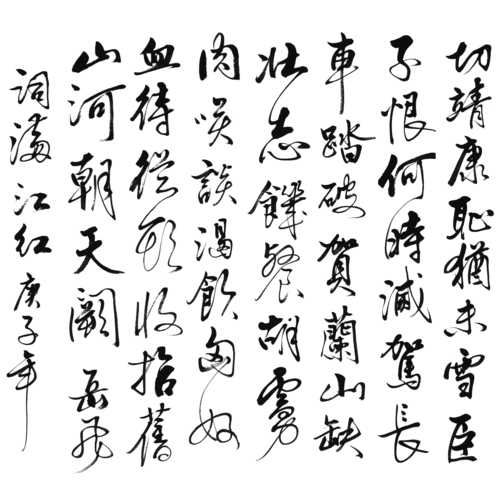 切靖康耻猶未雪臣
子恨何時滅駕長
車踏破賀蘭山缺
壯志饑餐胡虜
肉咲談渴飲匈奴
血待從頭收拾舊
山河朝天闕岳飛
詞滿江紅庚子年